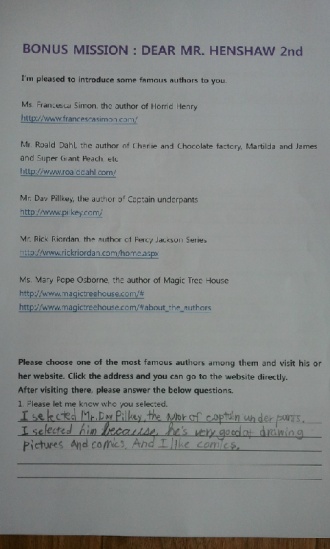 BONUS MISSION : DEAR MR. HENSHAW 2nd
I'm pleased to introduce some famous authors to you.
Ms. Francesca Simon, the author of Horrid Henry
http://www.francescasimon.com/
Mr. Roald Dahl, the author of Charlie and Chocolate factory, Martilda and James
and Super Giant Peach, etc
http://www.roalddahl.com/
Mr. Dav Pillkey, the author of Captain underpants
http://www.pilkey.com/
Mr. Rick Riordan, the author of Percy Jackson Series
http://www.rickriordan.com/home.aspx
Ms. Mary Pope Osborne, the author of Magic Tree House
http://www.magictreehouse.com/#
http://www.magictreehouse.com/#about_the_authors
Please choose one of the most famous authors among them and visit his or
her website. Click the address and you can go to the website directly.
After visiting there, please answer the below questions.
1. Please let me know who you selected.
I selected Mr. Dav Pilkey, the of captin under pants.
I selected him because, he's very good at drawing
pictures and comics. And I like comics.